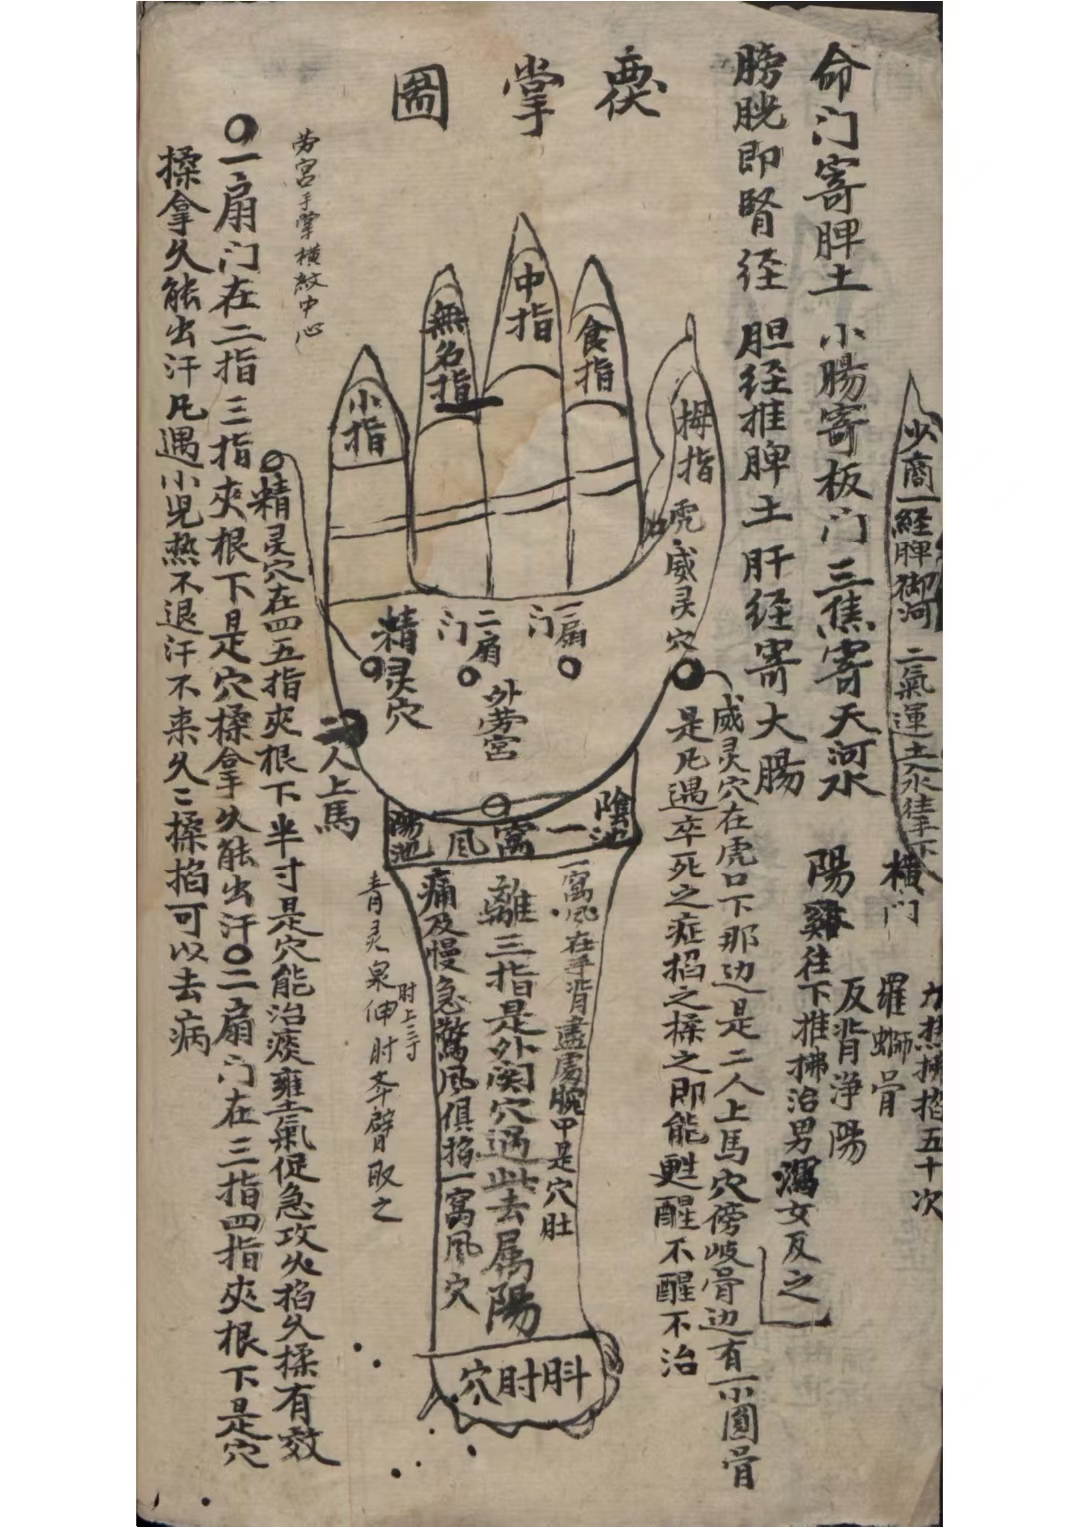 掌圖
命门寄脾土 小腸寄板门 三焦寄天河水
膀胱即腎经 胆经推脾土 肝经寄大腸
少商一経脾御河 二氣運土入水往手下
横门
陽雞往下推拂治男瀉女反之
反背浄陽
羅螄骨
九热拂掐五十次
劳宮手掌横紋中心
〇一扇门在二指三指夾根下是穴揉拿久能出汗〇二扇门在三指四指夾根下是穴
揉拿久能出汗凡遇小児热不退汗不来久〻揉掐可以去病
精灵穴在四五指夾根下半寸是穴能治痰壅氣促急攻火掐久揉有效
小指
無名指
中指
食指
拇指
虎威灵穴
精灵穴
二扇门
一扇门
外劳宮
二人上馬
陽池
一窩風
陰池
威灵穴在虎口下那边是二人上馬穴傍岐骨边有一小圓骨
是凡遇卒死之症掐之揉之即能甦醒不醒不治
一窩風在手背盡處腕中是穴肚
痛及慢急驚风俱掐一窩風穴
離三指是外関穴過此去属陽
青灵泉伸肘夲臂取之
肘上三寸
䏔肘穴